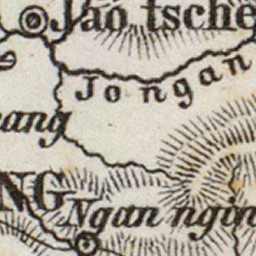 Jao tsche
Jongan
ang
NG
Ngan ngin